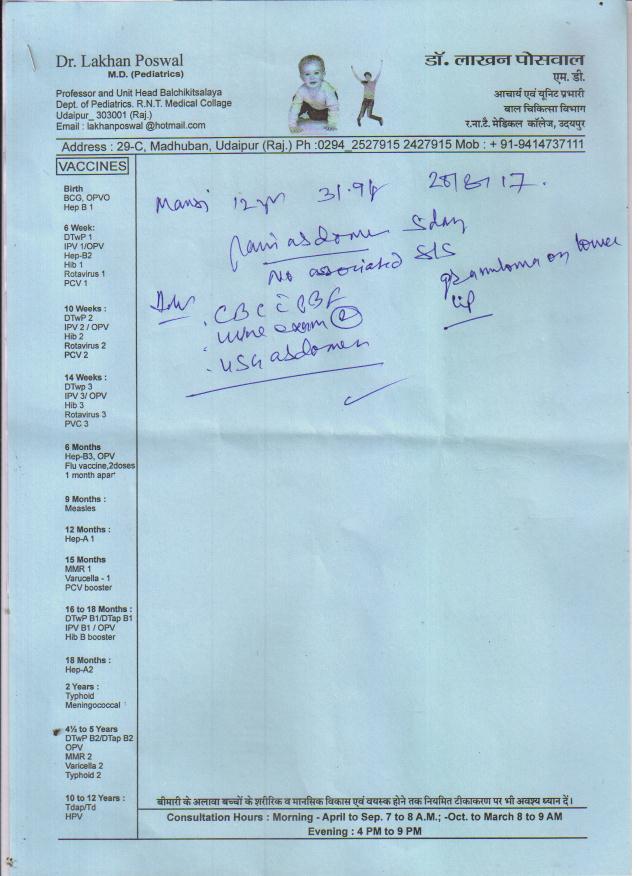 Dr. Lakhan Poswal
M.D. (Pediatrics)
Professor and Unit Head Balchikitsalaya
Dept. of Pediatrics. R.N.T. Medical Collage
Udaipur_ 303001 (Raj.)
Email : lakhanposwal @hotmail.com
डॉ. लाखन पोसवाल
एम. डी.
आचार्य एवं यूनिट प्रभारी
बाल चिकित्सा विभाग
र.ना.टै. मेडिकल कॉलेज, उदयपुर
Address : 29-C, Madhuban, Udaipur (Raj.) Ph :0294_2527915 2427915 Mob : + 91-9414737111
VACCINES
Birth
BCG, OPVO
Hep B 1
6 Week:
DTwP 1
IPV 1/OPV
Hep-B2
Hib 1
Rotavirus 1
PCV 1
10 Weeks :
DTwP 2
IPV 2 / OPV
Hib 2
Rotavirus 2
PCV 2
14 Weeks :
DTwp 3
IPV 3/ OPV
Hib 3
Rotavirus 3
PVC 3
6 Months
Hep-B3, OPV
Flu vaccine,2doses
1 month apar
9 Months :
Measles
12 Months :
Hep-A 1
15 Months
MMR 1
Varucella - 1
PCV booster
16 to 18 Months :
DTwP B1/DTap B1
IPV B1 / OPV
Hib B booster
18 Months :
Hep-A2
2 Years :
Typhoid
Meningococcal
4½ to 5 Years
DTwP B2/DTap B2
OPV
MMR 2
Varicella 2
Typhoid 2
10 to 12 Years :
Tdap/Td
HPV
Mansi 12 yr 31.9
pain abdomen 5 day
No associated S/S
granuloma on lower
lip
CBC c PBF
urine exam
USG abdomen
बीमारी के अलावा बच्चों के शरीरिक व मानसिक विकास एवं वयस्क होने तक नियमित टीकाकरण पर भी अवश्य ध्यान दें।
Consultation Hours : Morning - April to Sep. 7 to 8 A.M.; -Oct. to March 8 to 9 AM
Evening : 4 PM to 9 PM